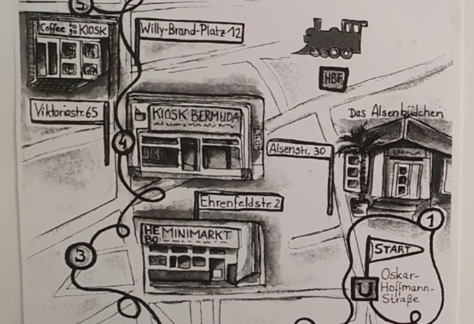 5
Coffee to go KIOSK
Willy-Brand-Platz 12
HBF
Viktoriastr. 65
KIOSK BERMUDA
Das Alsenbüdchen
4
Alsenstr. 30
Ehrenfeldstr. 2
HE BO MINIMARKT
1
START
3
U
Oskar-
Hoffmann-
Straße